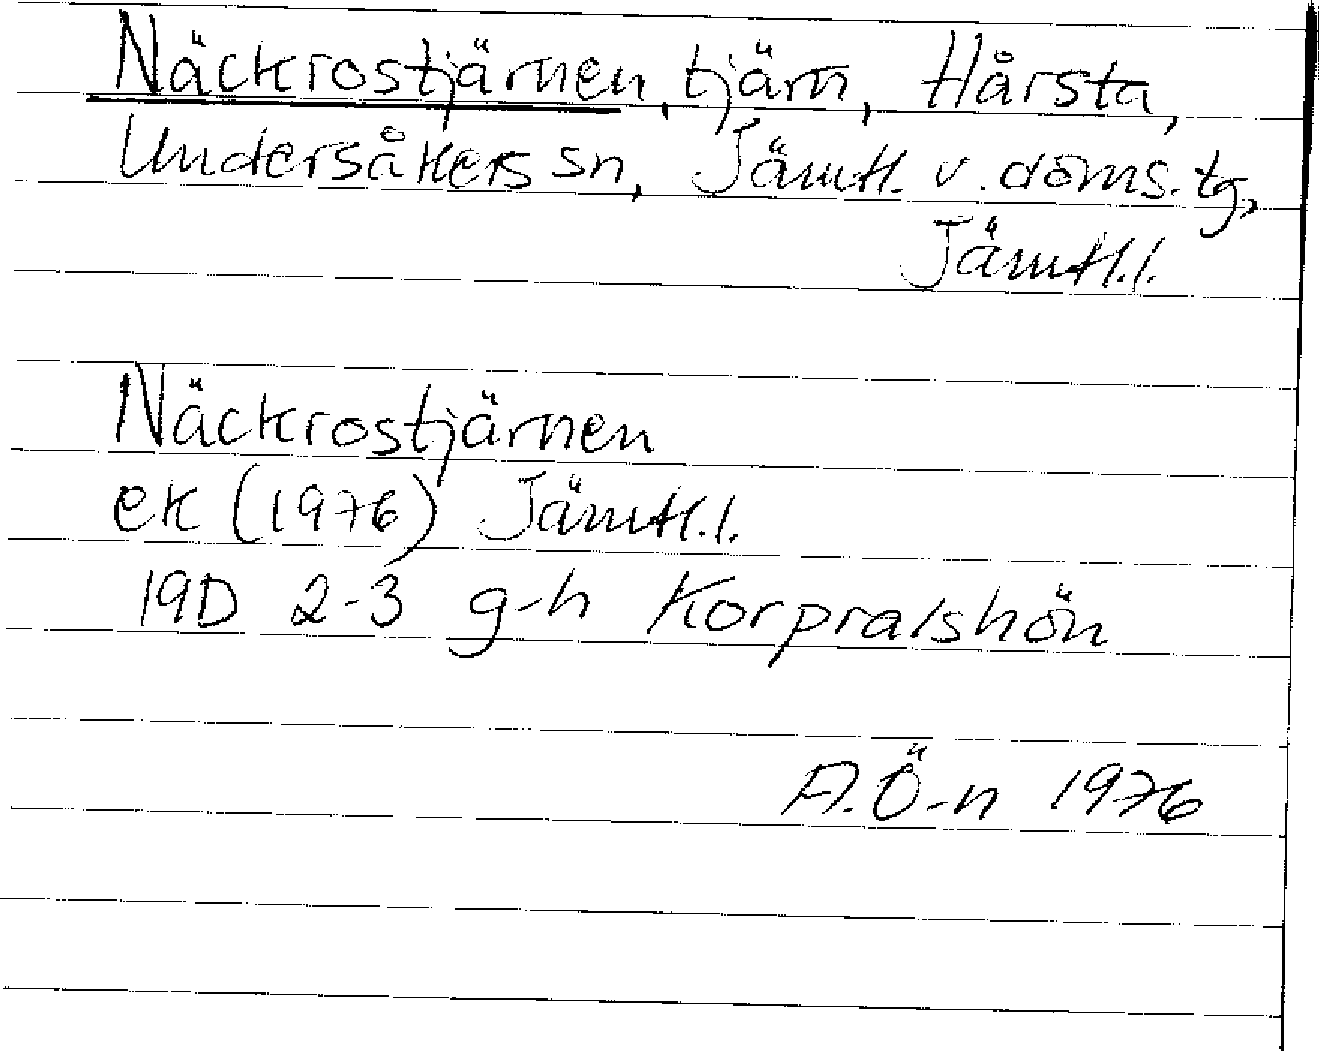 Näckrostjärnen, tjärn, Hårsta,
Undersåkers sn, Jämtl. v. doms. tg,
Jämtl.l.
Näckrostjärnen
ek (1976) Jämtl.l.
19D 2-3 g-h Korpralshön
A.Ö-n 1976